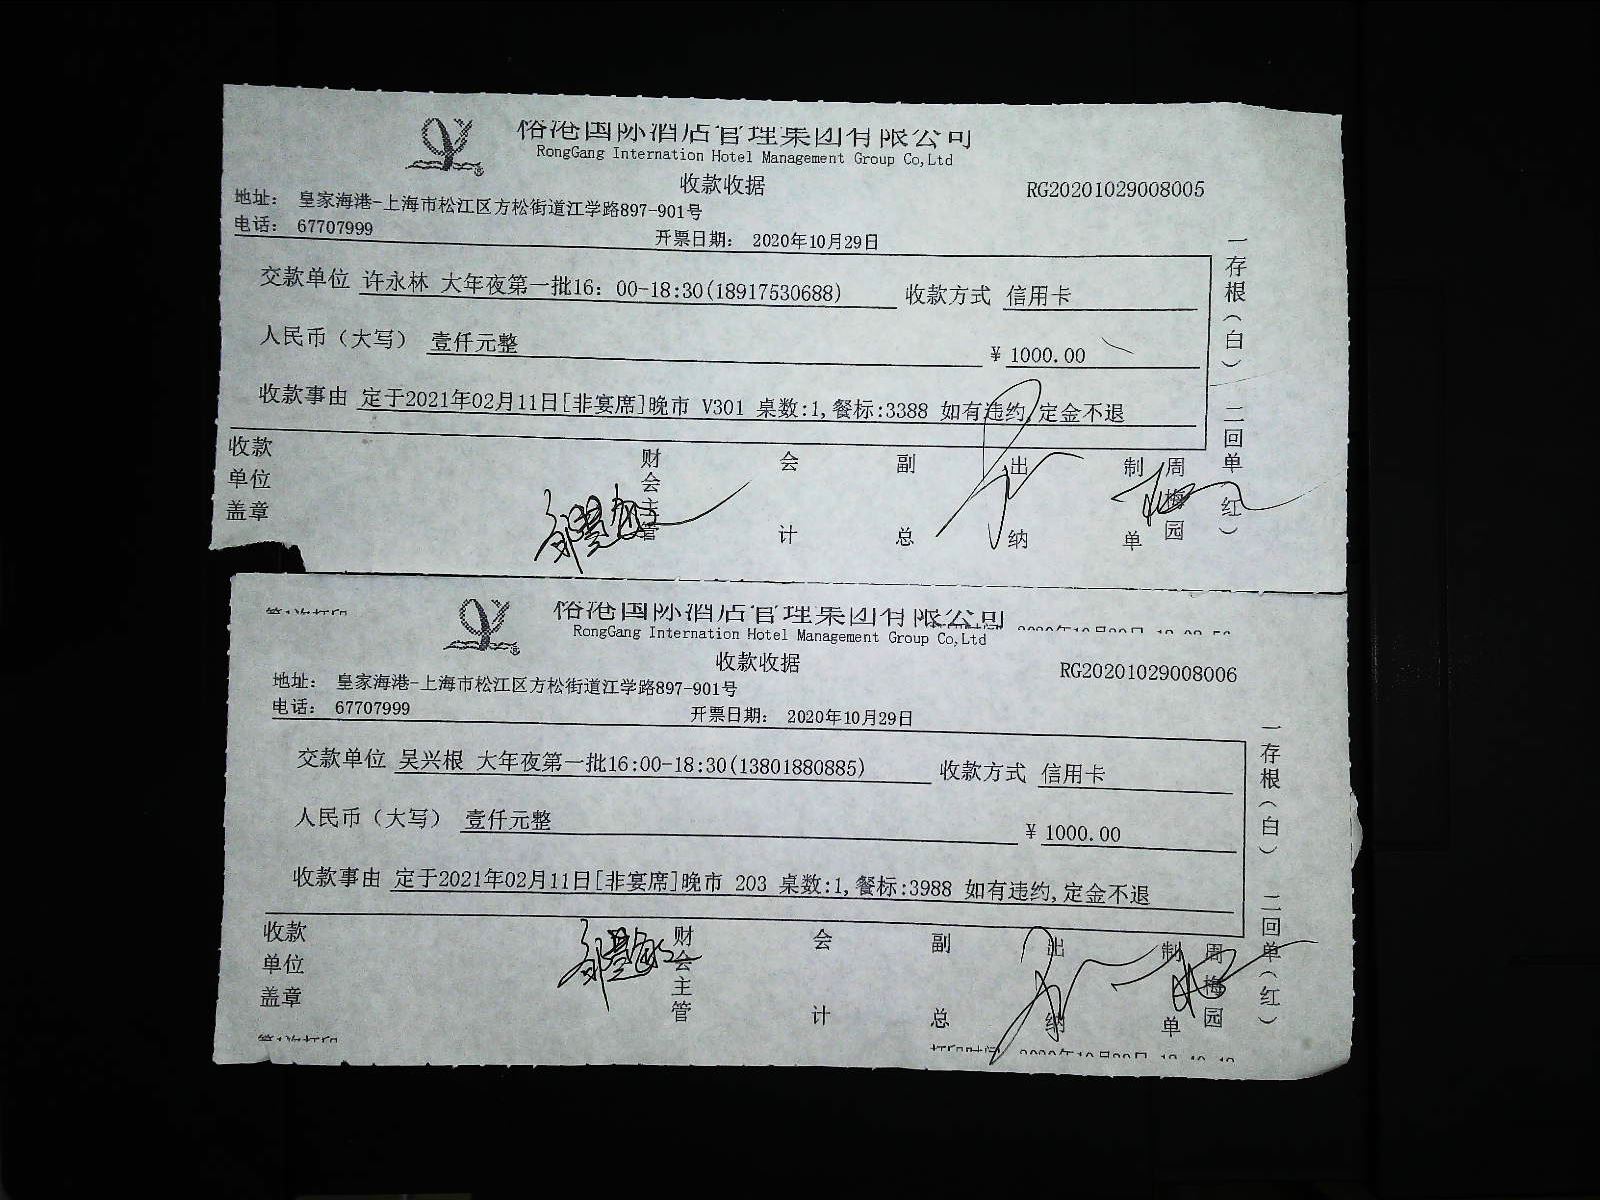 榕港国际酒店管理集团有限公司
RongGang Internation Hotel Management Group Co,Ltd
收款收据
RG20201029008005
地址： 皇家海港-上海市松江区方松街道江学路897-901号
电话： 67707999
开票日期： 2020年10月29日
交款单位 许永林 大年夜第一批16：00-18:30(18917530688) 收款方式 信用卡
人民币（大写） 壹仟元整 ￥ 1000.00
收款事由 定于2021年02月11日[非宴席]晚市 V301 桌数:1,餐标:3388 如有违约,定金不退
收款单位盖章 财会主管 会计 副总 出纳 制单 周梅园
一存根（白） 二回单（红）
第1次打印
榕港国际酒店管理集团有限公司
RongGang Internation Hotel Management Group Co,Ltd
收款收据
RG20201029008006
地址： 皇家海港-上海市松江区方松街道江学路897-901号
电话： 67707999
开票日期： 2020年10月29日
交款单位 吴兴根 大年夜第一批16:00-18:30(13801880885) 收款方式 信用卡
人民币（大写） 壹仟元整 ￥ 1000.00
收款事由 定于2021年02月11日[非宴席]晚市 203 桌数:1,餐标:3988 如有违约,定金不退
收款单位盖章 财会主管 会计 副总 出纳 制单 周梅园
一存根（白） 二回单（红）
第1次打印 打印时间